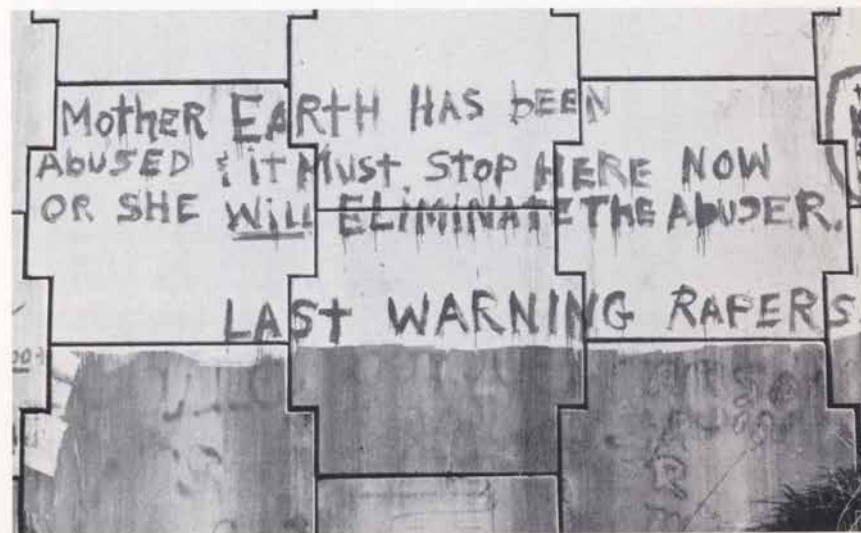 MotheR EARtH HAS bEEN
AbUSED & it MUSt StOP HERE NOW
OR SHE WiLL ELiMiNATE THE AbUSER.
LASt WARNING RAPERS